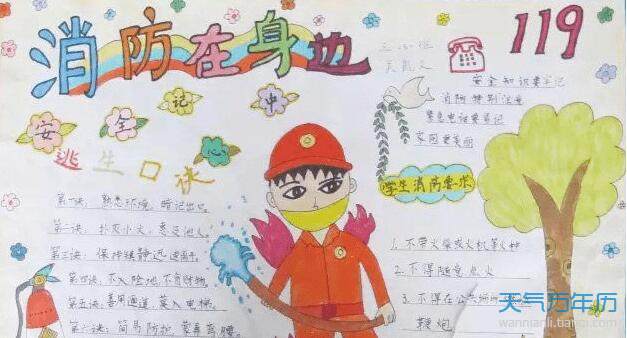 消防在身边
119
安全记心中
逃生口诀
第一诀：熟悉环境，暗记出口。
第二诀：扑灭小火，惠及他人。
第三诀：保持镇静迅速撤离。
第四诀：不入险地，不贪财物。
第五诀：善用通道，莫入电梯。
第六诀：简易防护，蒙鼻匍腰。
安全知识要牢记
消防特别注意
紧急电话要牢记
家园更美丽
学生消防要求
1. 不带火柴或火机等火种
2. 不得随意点火
3. 不得在公共场所
鞭炮
天气万年历
wannianli.tianqi.com